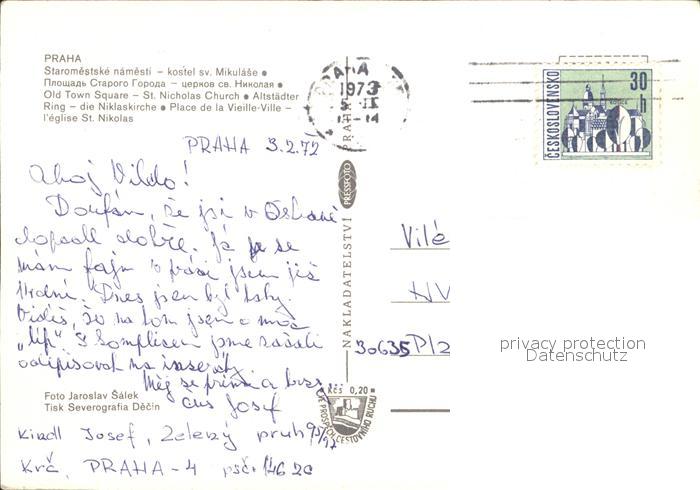 PRAHA
Staroměstské náměstí – kostel sv. Mikuláše ●
Площадь Старого Города – церков св. Николая ●
Old Town Square – St. Nicholas Church ● Altstädter
Ring – die Niklaskirche ● Place de la Vieille-Ville –
l'église St. Nikolas
PRAHA
1973
ČESKOSLOVENSKO
30
h
PRAHA 3.2.72
Ahoj Vildo!
Doufám, že jsi v
dopadl dobře. Já se
mám fajn v práci jsem již
Dnes jsem byl
Vidíš, že na tom jsem o moc
„líp". S komplicem jsme začali
odepisovat na inseráty.
Měj se a brzo
čus Josef
Kindl Josef, Zelený pruh 95/97
Krč, PRAHA-4 psč. 146 20
PRESSFOTO
NAKLADATELSTVÍ
Vilé
HV
30635 Plz
privacy protection
Datenschutz
Foto Jaroslav Šálek
Tisk Severografia Děčín
Kčs 0,20